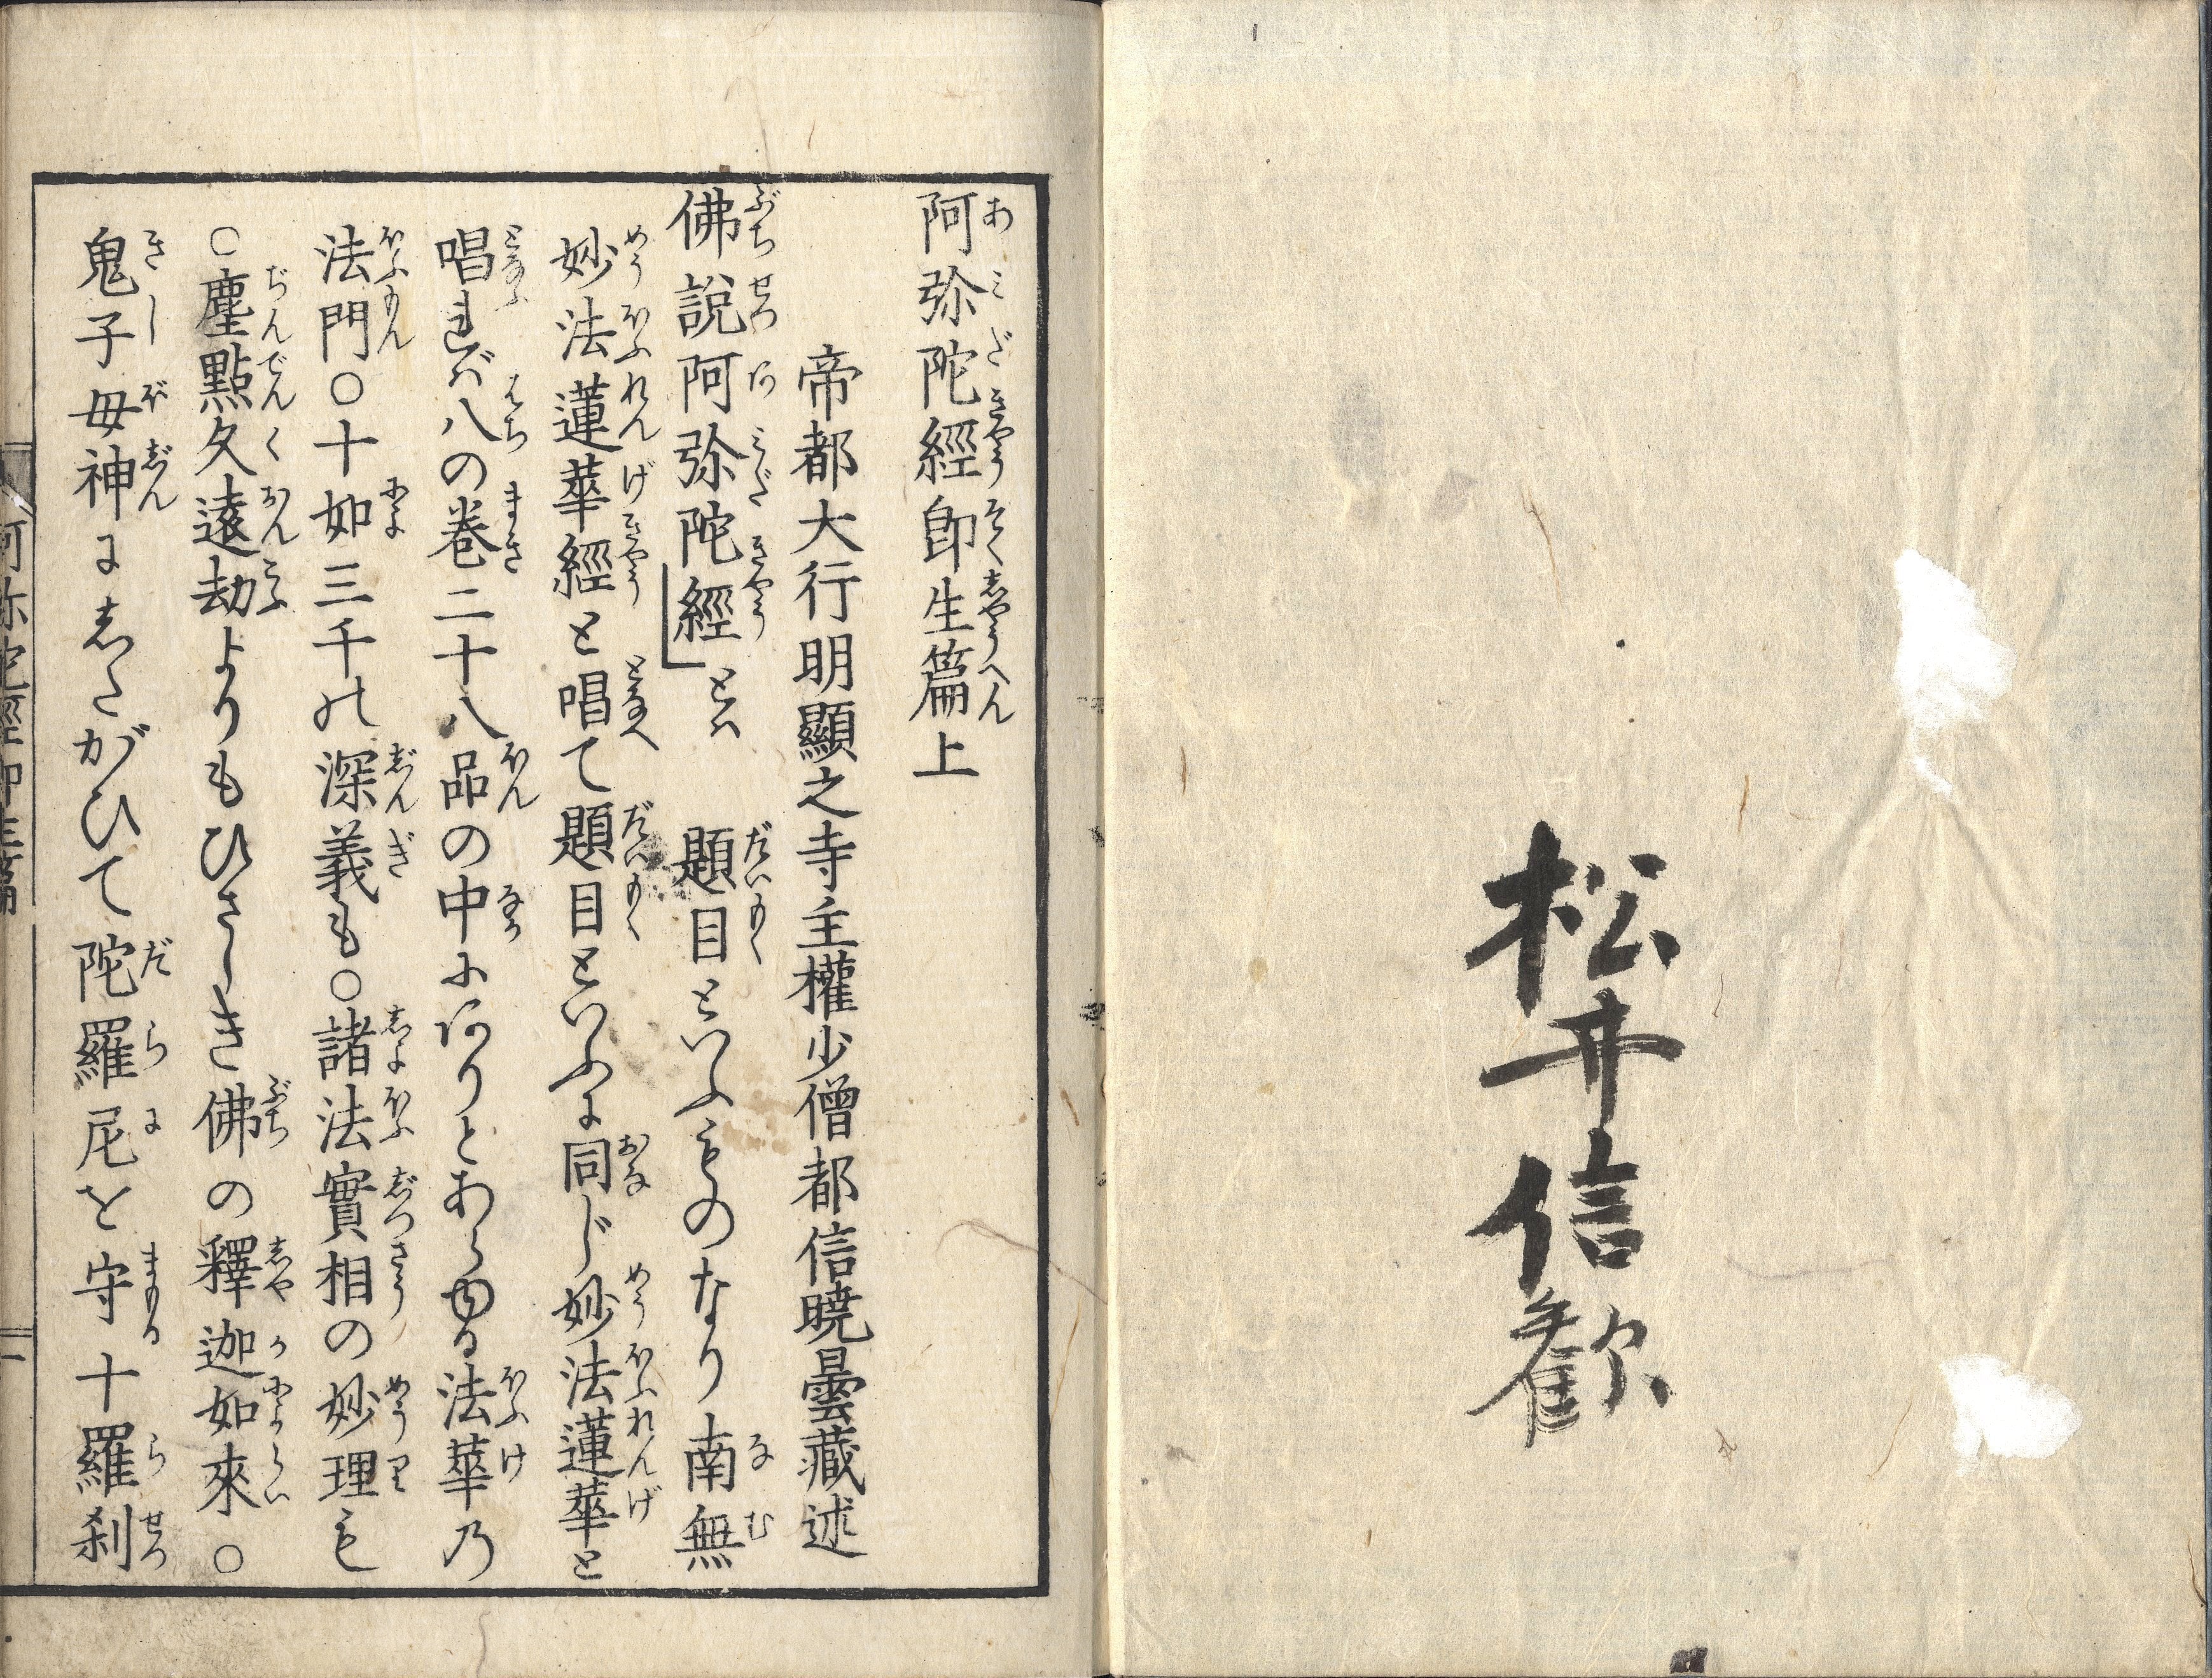 松井信歓
阿弥陀經即生篇上
帝都大行明顯之寺主權少僧都信曉曇藏述
佛說阿弥陀經とは 題目といふものなり南無
妙法蓮華經と唱て題目といふに同じ妙法蓮華と
唱れば八の巻二十八品の中にありとあらゆる法華乃
法門○十如三千の深義も○諸法實相の妙理も
○塵點久遠劫よりもひさしき佛の釋迦如來○
鬼子母神にしたがひて陀羅尼を守十羅刹